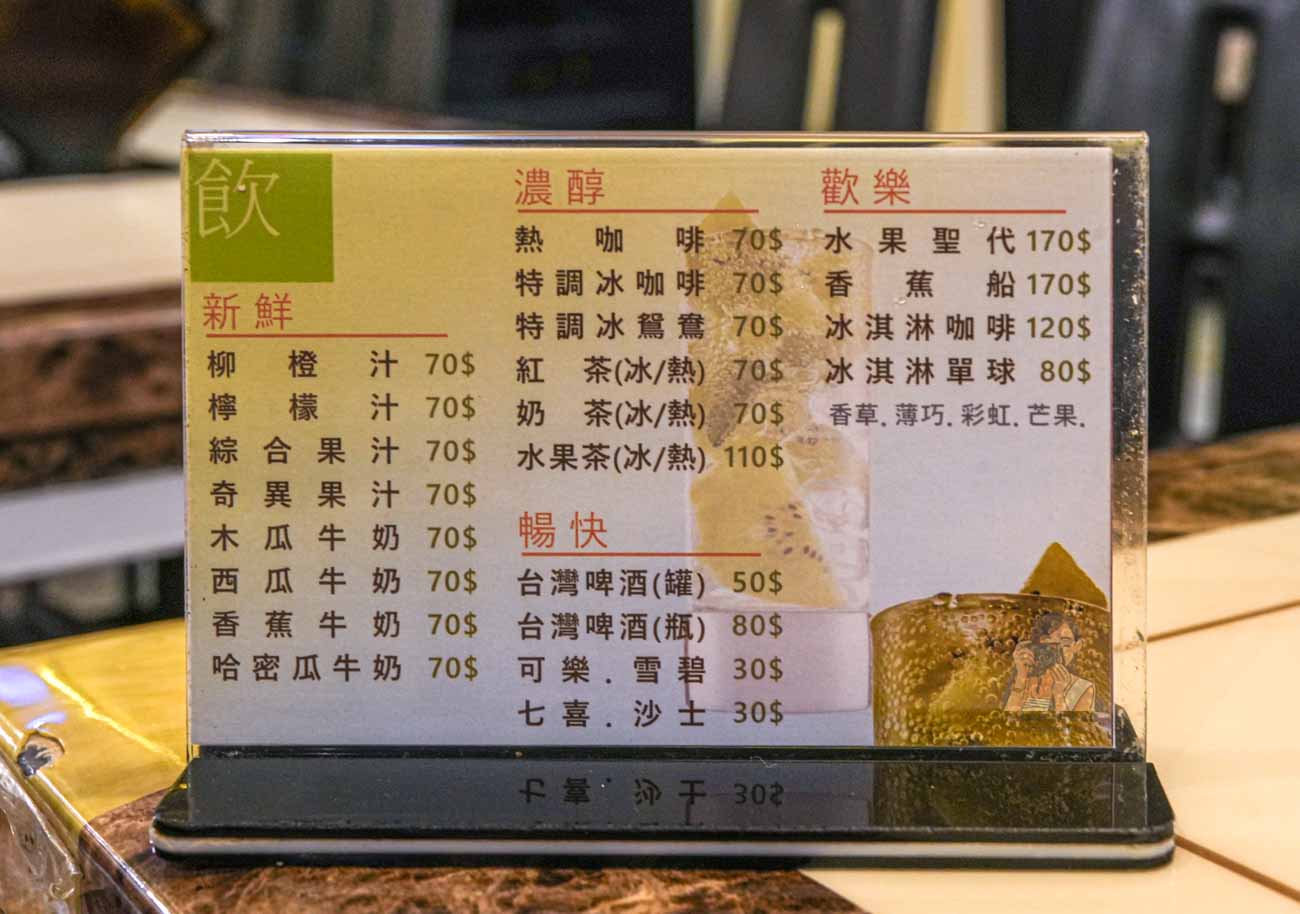 飲
新鮮
柳橙汁 70$
檸檬汁 70$
綜合果汁 70$
奇異果汁 70$
木瓜牛奶 70$
西瓜牛奶 70$
香蕉牛奶 70$
哈密瓜牛奶 70$
濃醇
熱咖啡 70$
特調冰咖啡 70$
特調冰鴛鴦 70$
紅茶(冰/熱) 70$
奶茶(冰/熱) 70$
水果茶(冰/熱) 110$
暢快
台灣啤酒(罐) 50$
台灣啤酒(瓶) 80$
可樂.雪碧 30$
七喜.沙士 30$
歡樂
水果聖代 170$
香蕉船 170$
冰淇淋咖啡 120$
冰淇淋單球 80$
香草.薄巧.彩虹.芒果.